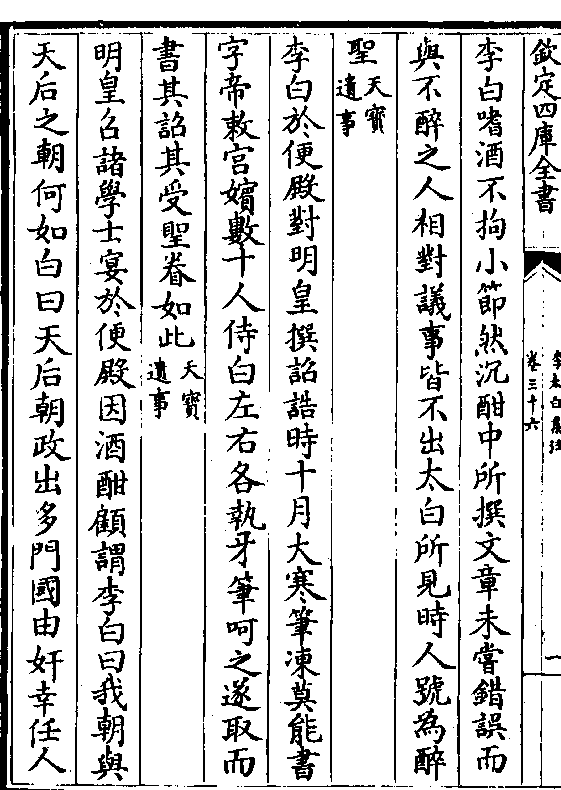 欽定四庫全書
李太白集注
卷三十六
一
李白嗜酒不拘小節然沉酣中所撰文章未嘗錯誤而
與不醉之人相對議事皆不出太白所見時人號為醉
聖天寶遺事
李白於便殿對明皇撰詔誥時十月大寒筆凍莫能書
字帝敕宮嬪數十人侍白左右各執牙筆呵之遂取而
書其詔其受聖眷如此天寶遺事
明皇召諸學士宴於便殿因酒酣顧謂李白曰我朝與
天后之朝何如白曰天后朝政出多門國由奸幸任人